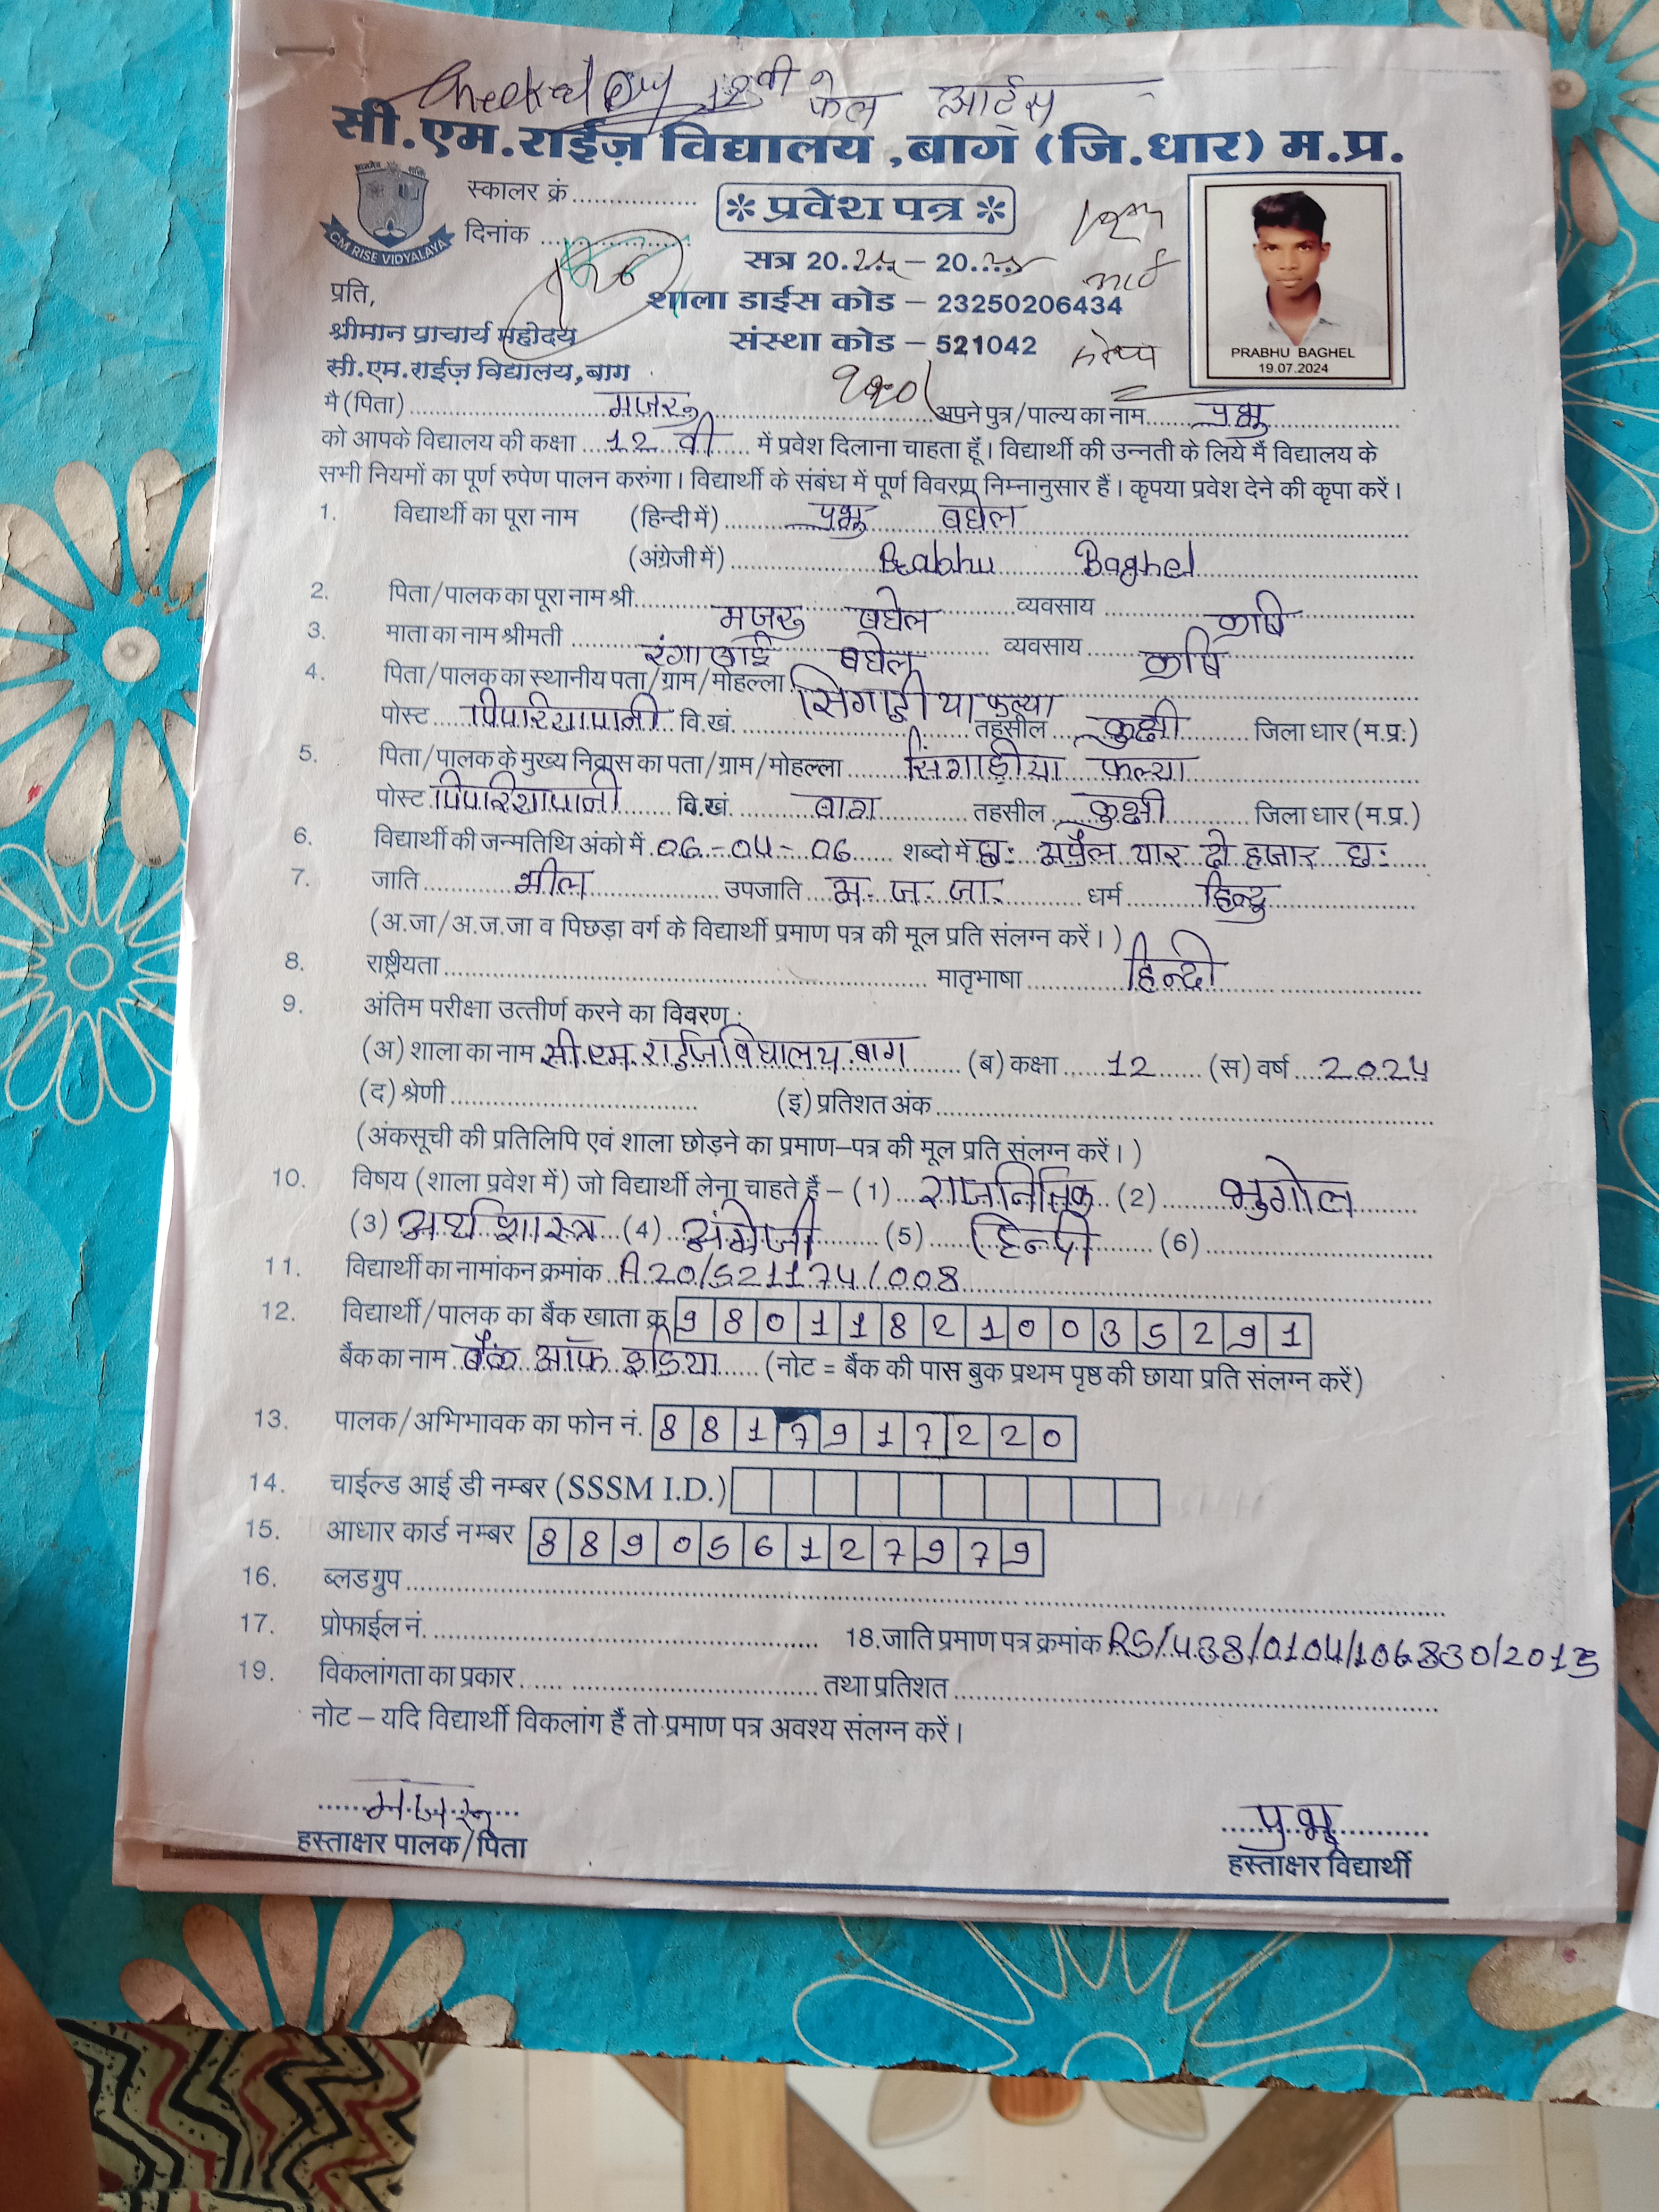 Checked By 12वी फेल आर्ट्स
सी.एम.राईज़ विद्यालय ,बाग (जि.धार) म.प्र.
स्कालर क्रं..................
* प्रवेश पत्र *
दिनांक ......................
CM RISE VIDYALAYA
सत्र 20.24. – 20.25
प्रति,
शाला डाईस कोड – 23250206434
श्रीमान प्राचार्य महोदय
संस्था कोड – 521042
PRABHU BAGHEL
19.07.2024
सी.एम.राईज़ विद्यालय,बाग
मै (पिता) मजरू अपने पुत्र/पाल्य का नाम प्रभु
को आपके विद्यालय की कक्षा 12 वी में प्रवेश दिलाना चाहता हूँ। विद्यार्थी की उन्नती के लिये मैं विद्यालय के
सभी नियमों का पूर्ण रुपेण पालन करुंगा। विद्यार्थी के संबंध में पूर्ण विवरण निम्नानुसार हैं। कृपया प्रवेश देने की कृपा करें।
1. विद्यार्थी का पूरा नाम (हिन्दी में) प्रभु बघेल
(अंग्रेजी में) Prabhu Baghel
2. पिता/पालक का पूरा नाम श्री मजरू बघेल व्यवसाय कृषि
3. माता का नाम श्रीमती रंगाबाई बघेल व्यवसाय कृषि
4. पिता/पालक का स्थानीय पता/ग्राम/मोहल्ला सिंगाडीया फल्या
पोस्ट पिपरियापानी वि.खं. तहसील कुक्षी जिला धार (म.प्र.)
5. पिता/पालक के मुख्य निवास का पता/ग्राम/मोहल्ला सिंगाडीया फल्या
पोस्ट पिपरियापानी वि.खं. बाग तहसील कुक्षी जिला धार (म.प्र.)
6. विद्यार्थी की जन्मतिथि अंको में 06-04-06 शब्दो में छः अप्रैल चार दो हजार छः
7. जाति भील उपजाति अ.ज.जा. धर्म हिन्दु
(अ.जा/अ.ज.जा व पिछड़ा वर्ग के विद्यार्थी प्रमाण पत्र की मूल प्रति संलग्न करें।)
8. राष्ट्रीयता मातृभाषा हिन्दी
9. अंतिम परीक्षा उत्तीर्ण करने का विवरण :
(अ) शाला का नाम सी.एम.राईज विद्यालय बाग (ब) कक्षा 12 (स) वर्ष 2024
(द) श्रेणी (इ) प्रतिशत अंक
(अंकसूची की प्रतिलिपि एवं शाला छोड़ने का प्रमाण–पत्र की मूल प्रति संलग्न करें।)
10. विषय (शाला प्रवेश में) जो विद्यार्थी लेना चाहते हैं – (1) राजनितिक (2) भुगोल
(3) अर्थशास्त्र (4) अंग्रेजी (5) हिन्दी (6)
11. विद्यार्थी का नामांकन क्रमांक A20/521174/008
12. विद्यार्थी/पालक का बैंक खाता क्र 980118210035291
बैंक का नाम बैंक ऑफ इंडिया (नोट = बैंक की पास बुक प्रथम पृष्ठ की छाया प्रति संलग्न करें)
13. पालक/अभिभावक का फोन नं. 8817917220
14. चाईल्ड आई डी नम्बर (SSSM I.D.)
15. आधार कार्ड नम्बर 889056127979
16. ब्लड ग्रुप
17. प्रोफाईल नं. 18.जाति प्रमाण पत्र क्रमांक RS/438/0104/106830/2013
19. विकलांगता का प्रकार तथा प्रतिशत
नोट – यदि विद्यार्थी विकलांग हैं तो प्रमाण पत्र अवश्य संलग्न करें।
मजरू
प्रभु
हस्ताक्षर पालक/पिता
हस्ताक्षर विद्यार्थी